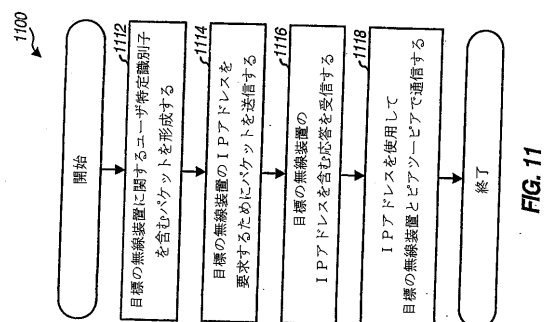 1100
開始
1112
目標の無線装置に関するユーザ特定識別子
を含むパケットを形成する
1114
目標の無線装置のIPアドレスを
要求するためにパケットを送信する
1116
目標の無線装置の
IPアドレスを含む応答を受信する
1118
IPアドレスを使用して
目標の無線装置とピアツーピアで通信する
終了
FIG. 11